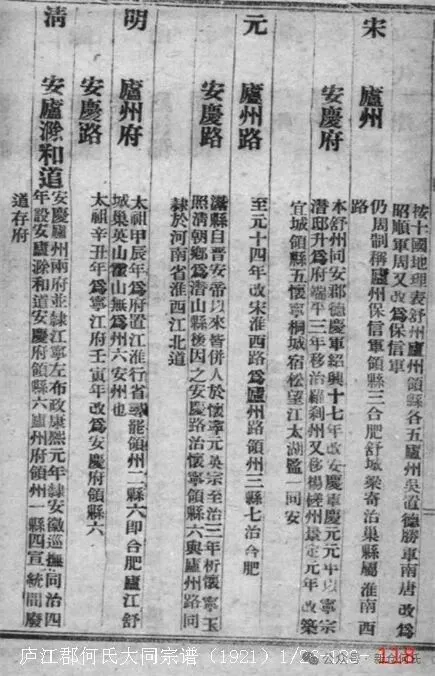 宋
廬州
按十國地理表舒州廬州領縣各五廬州吳置德勝軍南唐改爲
昭順軍周又改爲保信軍
仍周制稱廬州保信軍領縣三合肥舒城梁寄治巢縣屬淮南西
路
安慶府
本舒州同安郡德慶軍紹興十七年改安慶軍慶元元年以寧宗
潛邸升爲府端平三年移治羅刹州又移楊槎州景定元年改築
宜城領縣五懷寧桐城宿松望江太湖監一同安
元
廬州路
至元十四年改宋淮西路爲廬州路領州三縣七治合肥
安慶路
灊縣自晉安帝以來皆併入於懷寧元英宗至治三年析懷寧玉
照清朝鄉爲潛山縣後因之安慶路治懷寧領縣六與廬州路同
隸於河南省淮西江北道
明
廬州府
太祖甲辰年爲府置江淮行省尋罷領州二縣六即合肥廬江舒
城巢英山霍山無爲州六安州也
安慶路
太祖辛丑年爲寧江府壬寅年改爲安慶府領縣六
清
安廬滁和道
安慶廬州兩府並隸江寧左布政康熙元年隸安徽巡撫同治四
年設安廬滁和道安慶府領縣六廬州府領州一縣四宣統間廢
道存府
庐江郡何氏大同宗谱（1921）
118